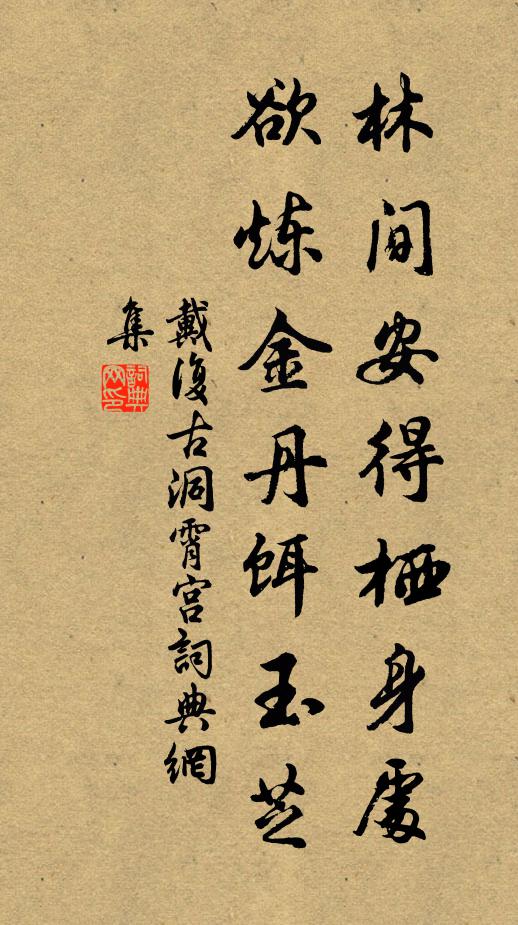 林间安得栖身處
欲炼金丹饵玉芝
戴復古洞霄宫詞典網
集
詞典网印